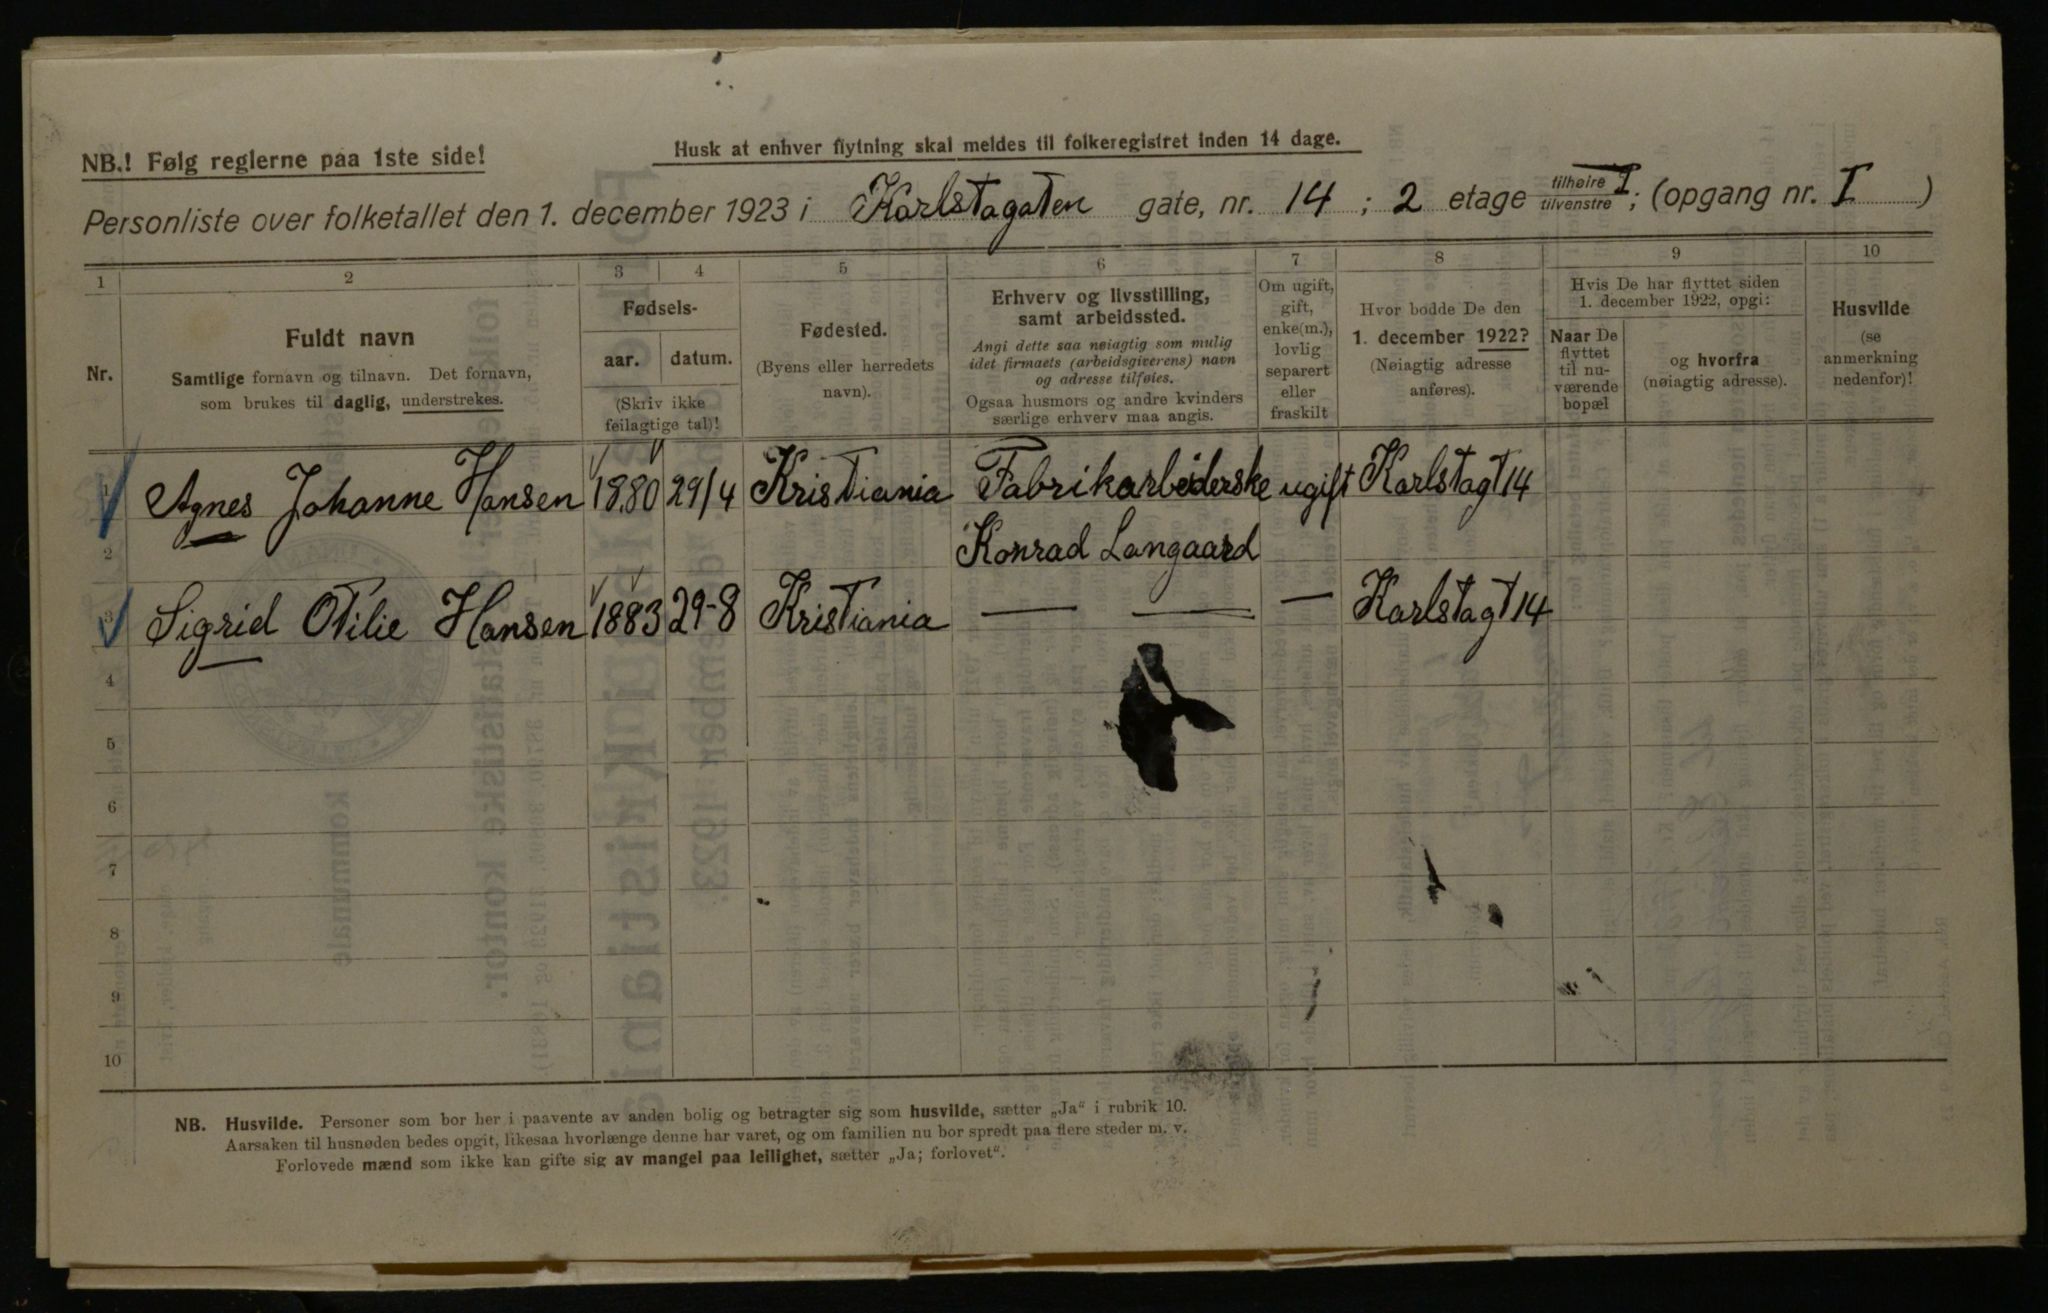 NB.! Følg reglerne paa 1ste side!
Husk at enhver flytning skal meldes til folkeregistret inden 14 dage.
Personliste over folketallet den 1. december 1923 i Karlstagaten gate, nr. 14 ; 2 etage tilhøire I; (opgang nr. I )
tilvenstre
1 2 3 4 5 6 7 8 9 10
Nr.
Fuldt navn
Samtlige fornavn og tilnavn. Det fornavn,
som brukes til daglig, understrekes.
Fødsels-
aar. datum.
(Skriv ikke
feilagtige tal)!
Fødested.
(Byens eller herredets
navn).
Erhverv og livsstilling,
samt arbeidssted.
Angi dette saa nøiagtig som mulig
idet firmaets (arbeidsgiverens) navn
og adresse tilføies.
Ogsaa husmørs og andre kvinders
særlige erhverv maa angis.
Om ugift,
gift,
enke(m.),
lovlig
separert
eller
fraskilt
Hvor bodde De den
1. december 1922?
(Nøiagtig adresse
anføres).
Hvis De har flyttet siden
1. december 1922, opgi:
Naar De
flyttet
til nu-
værende
bopæl
og hvorfra
(nøiagtig adresse).
Husvilde
(se
anmerkning
nedenfor)!
1 Agnes Johanne Hansen 1880 29/4 Kristiania Fabrikarbeiderske ugift Karlstagt 14
2 Konrad Langaard
3 Sigrid Otilie Hansen 1883 29-8 Kristiania — — — Karlstagt 14
4
5
6
7
8
9
10
NB. Husvilde. Personer som bor her i paavente av anden bolig og betragter sig som husvilde, sætter „Ja" i rubrik 10.
Aarsaken til husnøden bedes opgit, likesaa hvorlænge denne har varet, og om familien nu bor spredt paa flere steder m. v.
Forlovede mænd som ikke kan gifte sig av mangel paa leilighet, sætter „Ja; forlovet".